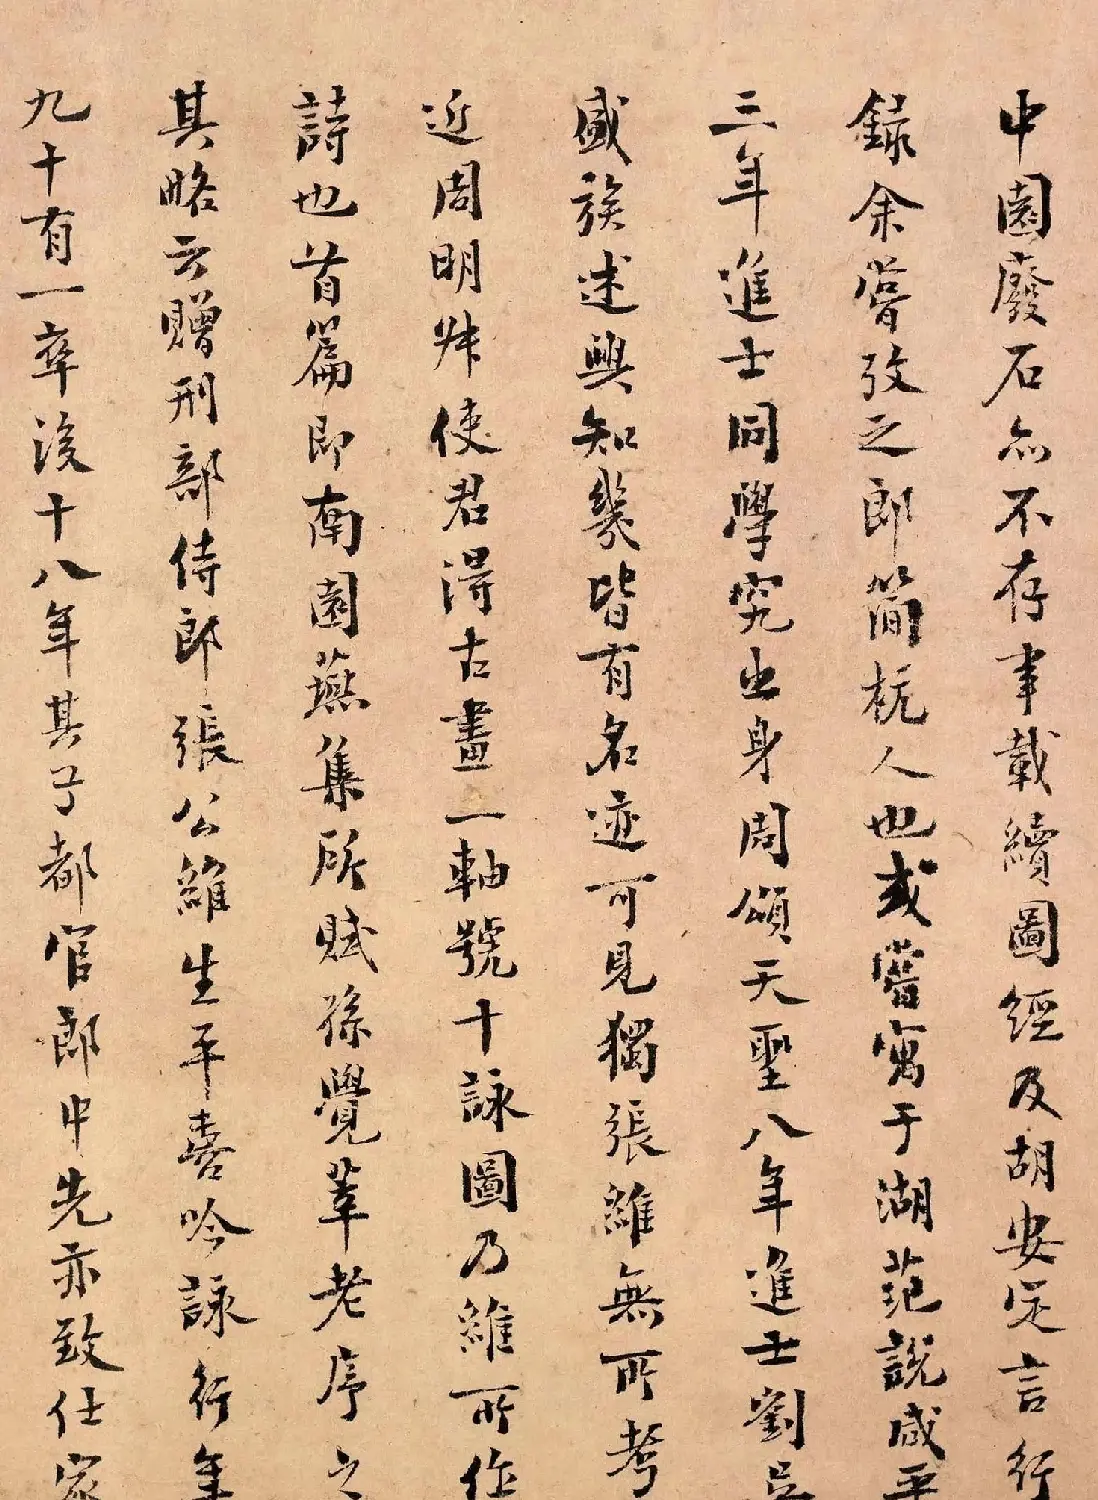 中園廢石亦不存事載續圖經及胡安定言行
錄余嘗攷之郎簡杭人也或嘗寓于湖范說咸平
三年進士同學究出身周頌天聖八年進士劉吳
盛族述與知幾皆有名迹可見獨張維無所考
近周明叔使君得古畫一軸號十詠圖乃維所作
詩也首篇即南園燕集所賦孫覺莘老序之
其略云贈刑部侍郎張公維生平喜吟詠行年
九十有一卒後十八年其子都官郎中先亦致仕家